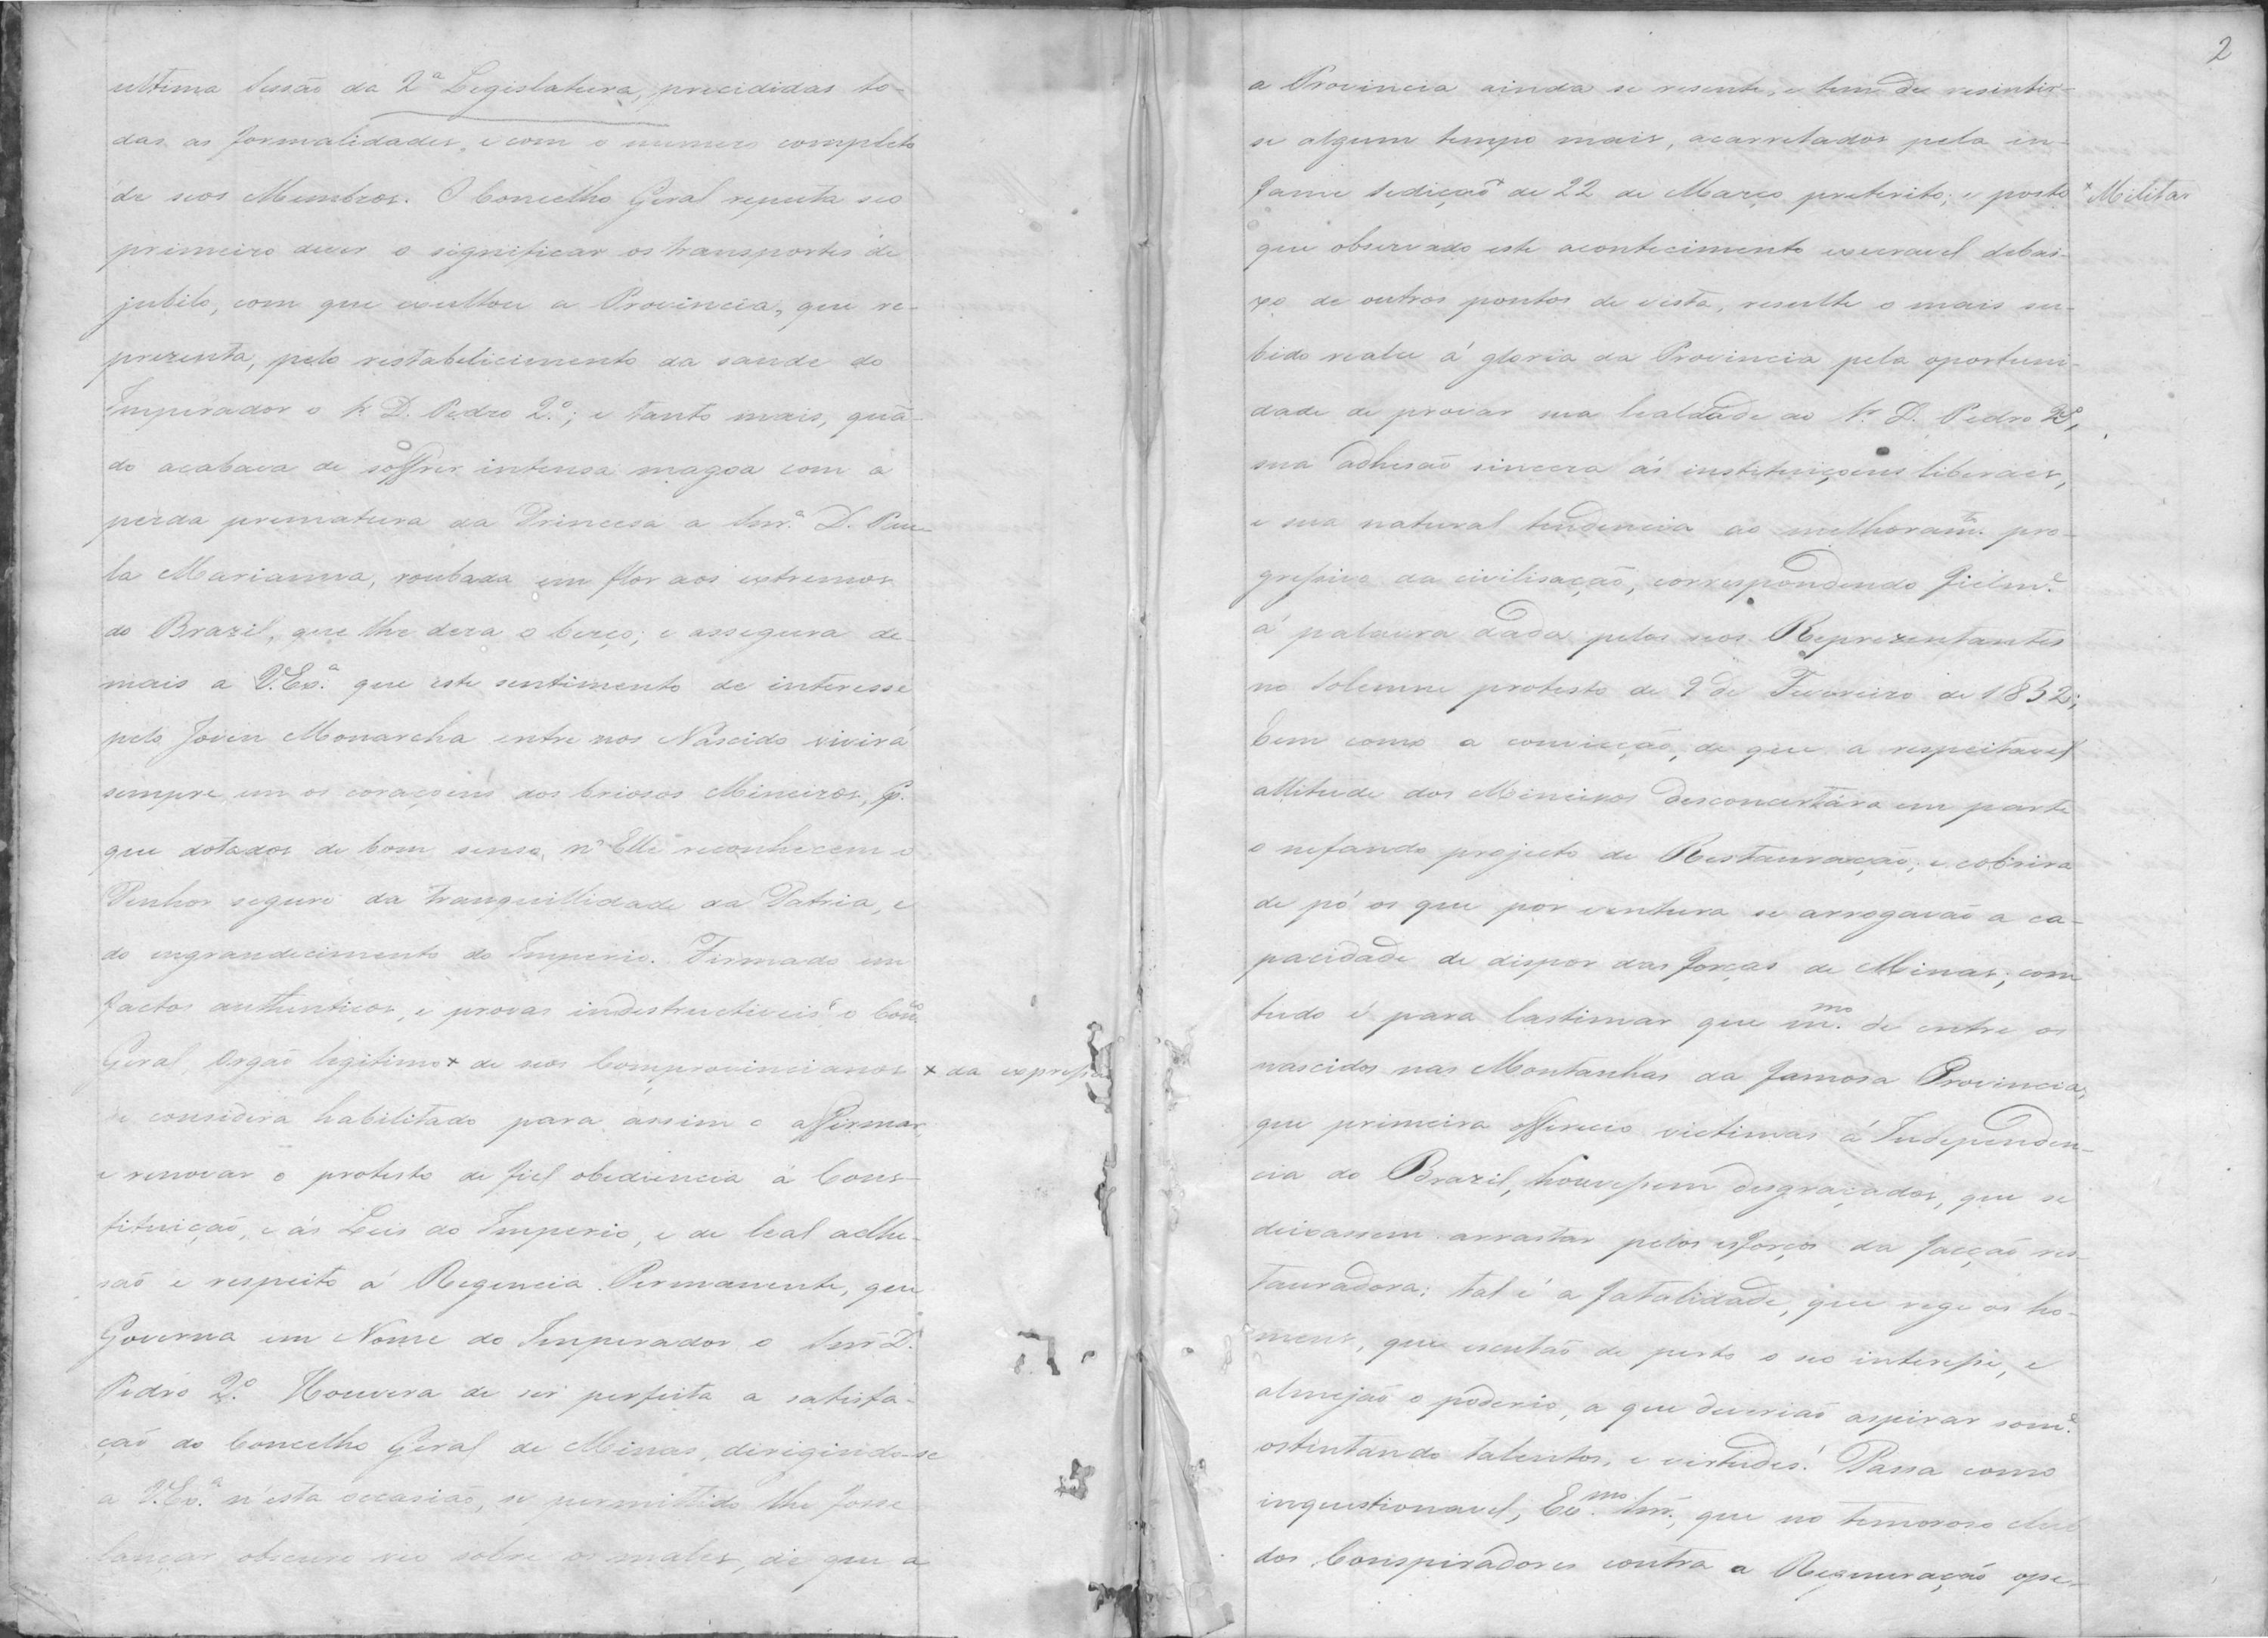 ultima Sessão da 2ª Legislatura, precididas to-
das as formalidades, e com o numero completo
de seos Membros. O Concelho Geral reputa seo
primeiro dever o significar os transportes de
jubilo, com que exultou a Provincia, que re-
prezenta, pelo restabelicimento da saude do
Imperador o Sr. D. Pedro 2.º; e tanto mais, quã-
do acabava de soffrer intensa magoa com a
perda prematura da Princesa a Snr.ª D. Pau-
la Marianna, roubada em flor aos extremos
do Brazil, que lhe dera o berço; e assegura de-
mais a V. Ex.ª que este sentimento de interesse
pelo Joven Monarcha entre nos Nascido vivirá
sempre em os coraçoens dos briosos Mineiros,
que dotados de bom senso, n'Elle reconhecem o
Penhor seguro da tranquillidade da Patria, e
do engrandecimento do Imperio. Firmado em
factos authenticos, e provas indestructiveis o Conc.º
Geral, Orgão legitimo × de seos Comprovincianos × da expressão
se considera habilitado para assim o affirmar,
e renovar o protesto de fiel obediencia á Cons-
tituição, e ás Leis do Imperio, e de leal adhe-
são e respeito á Regencia Permanente, que
Governa em Nome do Imperador o Snr. D.
Pedro 2.º Houvera de ser perfeita a satisfa-
ção do Concelho Geral de Minas, dirigindo-se
a V. Ex.ª n'esta occasião, se permittido lhe fosse
lançar obscuro veo sobre os males, de que a
2
a Provincia ainda se resente, e tem de resintir-
se algum tempo mais, acarretados pela in-
fame Sedição × de 22 de Março preterito; e posto × Militar
que observado este acontecimento execravel debai-
xo de outros pontos de vista, resulte o mais su-
bido realce á gloria da Provincia pela oportuni-
dade de provar sua lealdade ao Sr. D. Pedro 2º,
sua adhesão sincera ás instituiçoens liberaes,
e sua natural tendencia ao melhoram.to pro-
gressivo da civilisação, correspondendo fielm.e
á palavra dada pelos seos Reprezentantes
no Solemne protesto de 9 de Fevereiro de 1832;
bem como a convicção, de que a respeitavel
attitude dos Mineiros desconcertára em parte
o nefando projecto de Restauração; e cobrira
de pó os que por ventura se arrogavão a ca-
pacidade de dispor das forças de Minas; com
tudo é para lastimar que m.mo de entre os
nascidos nas Montanhas da famosa Provincia,
que primeira offereceo victimas á Independen-
cia do Brazil, houvessem desgraçados, que se
deixassem arrastar pelos esforços da facção res-
tauradora; tal é a fatalidade, que rege os ho-
mens, que escutão de perto o seo interesse, e
almejão o poderio, a que deverião aspirar som.e
ostentando talentos, e virtudes! Passa como
inquestionavel, Ex.mo Snr., que no temoroso
dos Conspiradores contra a Regeneração ope-